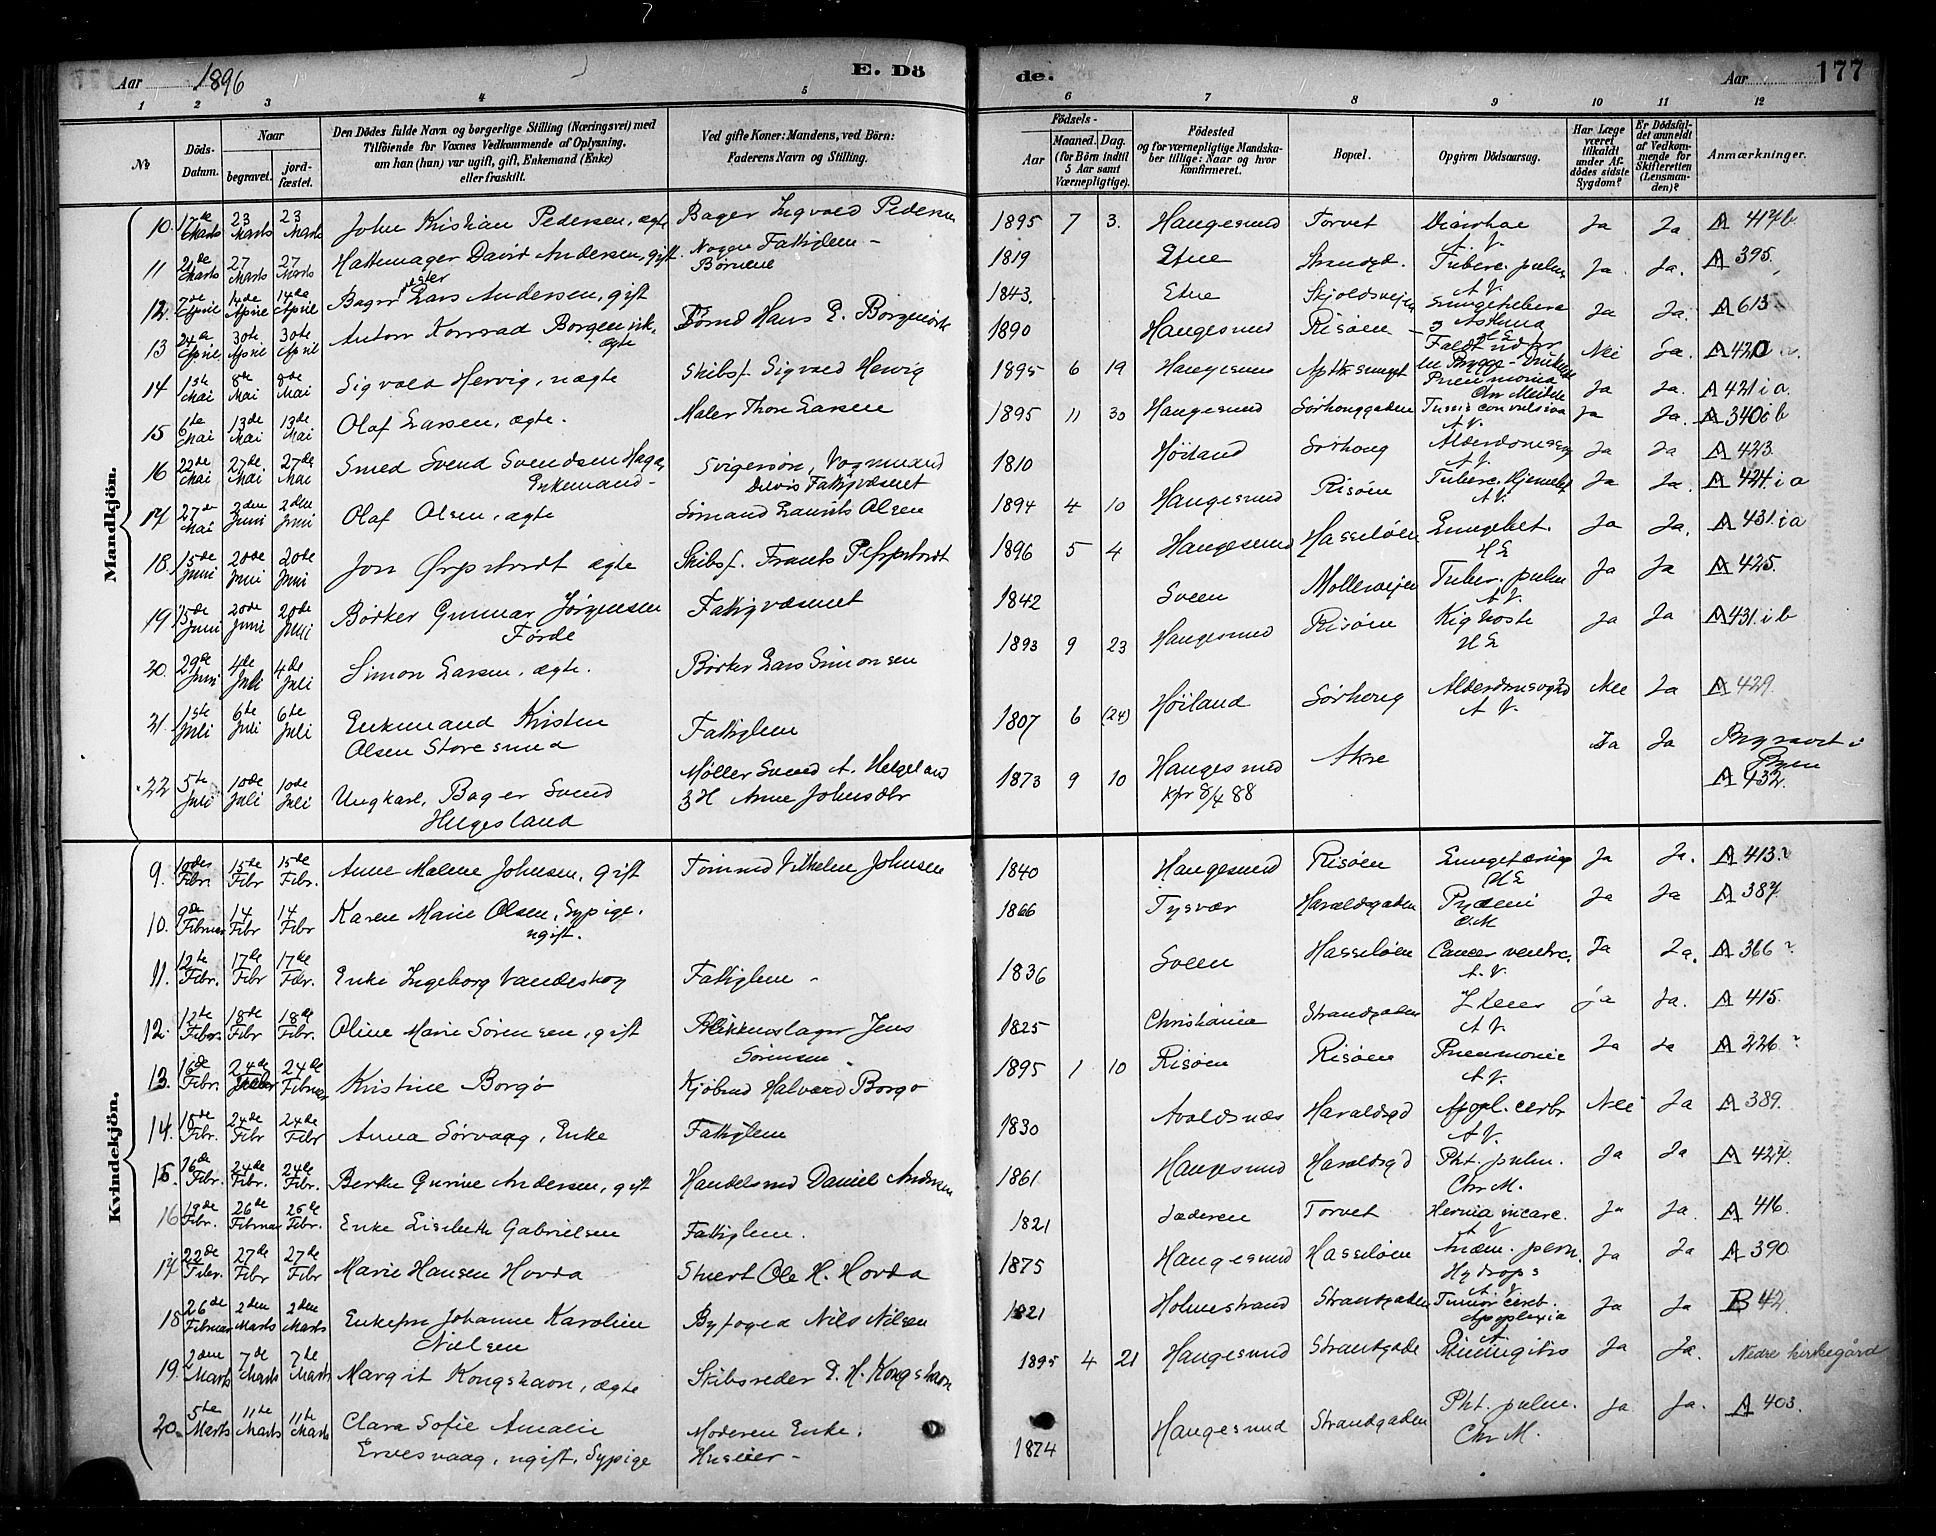 Aar 1896 E. Dö de. Aar 177
1 2 3 4 5 6 7 8 9 10 11 12
№ Döds-Datum. Naar begravet. jordfæstet.
Den Dödes fulde Navn og borgerlige Stilling (Næringsvei) med
Tilföiende for Voxnes Vedkommende af Oplysning,
om han (hun) var ugift, gift, Enkemand (Enke)
eller fraskilt.
Ved gifte Koner: Mandens, ved Börn:
Faderens Navn og Stilling.
Födsels- Aar Maaned. Dag. (for Börn indtil 5 Aar samt Værnepligtige).
Födested
og for værnepligtige Mandskaber tillige: Naar og hvor
konfirmeret.
Bopæl.
Opgiven Dödsaarsag.
Har Læge været tilkaldt under Afdödes sidste Sygdom?
Er Dödsfaldet anmeldt af Vedkommende for Skifteretten (Lensmanden)?
Anmærkninger.
Mandkjön.
10. 17de Marts 23 Marts 23 Marts John Kristian Pedersen, ægte Bager Ingvald Pedersen 1895 7 3. Haugesund Torvet Diarrhae A.V. Ja Ja A 417b
11 21de Marts 27 Marts 27 Marts Hattemager David Andersen, gift. Fattiglem - Børnene 1819 Etne Strandgd. Tuberc. pulm. A.V. Ja Ja. A 395.
12. 7de April 14de April 14de April Bager Lars Andersen, gift 1843. Etne Skjoldsveien og Asthma Ja Ja. A 613
13 24de April 30te April 30te April Anton Konrad Borgenvik, ægte Hans E. Borgenvik 1890 Haugesund Risøen Nei Ja. A 420
14 1ste Mai 8de Mai 8de Mai Sigvald Hervig, uægte Skibsf. Sigvald Hervig 1895 6 19 Haugesund Pneumonia Ja Ja. A 421 i a.
15 6te Mai 13de Mai 13de Mai Olaf Larsen, ægte. Maler Thore Larsen 1895 11 30 Haugesund Sørhauggaden Tussis convulsiva A.V. Ja Ja. A 340 i b
16 22de Mai 27de Mai 27de Mai Smed Svend Svendsen Haga, Enkemand - Svigersøn, Vognmand Delvis Fattigvæsenet 1810 Høiland Sørhaug Alderdomssvag A.V. Ja Ja A 423.
17 27de Mai 2den Juni 2den Juni Olaf Olsen, ægte Sømand Laurits Olsen 1894 4 10 Haugesund Risøen Tuberc. A.V. Ja Ja. A 424. i a
18. 15de Juni 20de Juni 20de Juni Jon ægte Skibsf. Frants 1896 5 4 Haugesund Hasseløen Lungebet. HE Ja Ja. A 431. i a
19. 15de Juni 20de Juni 20de Juni Børker Gunnar Jørgensen Førde Fattigvæsenet 1842 Sveen Møllerveien Tuber. pulm A.V. Ja Ja A 425.
20. 29de Juni 4de Juli 4de Juli Simon Larsen, ægte. Børker Lars Simonsen 1893 9 23 Haugesund Risøen Kighoste HE Ja Ja A 431. i b
21. 1ste Juli 6te Juli 6te Juli Enkemand Kristen Olsen Storesund Fattiglem 1807 6 (24) Høiland Sørhaug Alderdomssvaghed A.V. Nei Ja A 429.
22 5te Juli 10de Juli 10de Juli Ungkarl, Bager Svend Helgeland Møller Svend A. Helgeland & H. Anne Johnsdtr 1873 9 10 Haugesund Kfr 8/4 88 Akre Ja Ja Begravet i Byen A 432.
Kvindekjön.
9. 10de Febr. 15de Febr 15de Febr. Anne Malene Johnsen, gift Vilhelm Johnsen 1840 Haugesund Risøen HE Ja Ja. A 413.
10. 9de Februar 14 Febr 14 Febr Karen Marie Olsen, Sypige, ugift. 1866 Tysvær Haraldsgaden Pyæmi C.M Ja Ja A 387.
11. 12te Febr. 17de Febr 17de Febr. Enke Ingeborg Vandeskog Fattiglem - 1836 Sveen Hasseløen Cancer ventric. A.V. Ja Ja. A 366
12. 12te Febr. 18de Febr. 18de Febr. Oline Marie Sørensen, gift Blikkenslager Jens Sørensen - 1825 Christiania Strandgaden A.V. Ja Ja. A 415.
13. 16de Febr. 24de 24de Februar Kristine Borgø Kjøbmd Halvard Borgø 1895 1 10 Risøen Risøen Pneumonie A.V. Ja Ja A 226.
14. 15de Febr. 24de Febr 24de Febr Anna Sørvaag, Enke Fattiglem 1830 Avaldsnæs Haraldsgd Apopl. cerbr A.V. Nei Ja A 389.
15. 16de Febr. 24de Febr. 24de Febr. Berthe Gurine Andersen, gift Handelsmd Daniel Andersen 1861 Haugesund Haraldsgd Pht. pulm. Chr M. Ja Ja A 427.
16 19de Febr. 26de Februar 26de Febr. Enke Lisebeth Gabrielsen Fattiglem. 1821 Jæderen Torvet Hernia incarc. A V Ja Ja. A 416.
17 22de Febr. 27de Febr 27de Febr Marie Hansen Hovda Stuert Ole H. Hovda 1875 Haugesund Hasseløen Anæm. pern. Hydrops A.V. Ja Ja A 390.
18 26de Februar 2den Marts 2den Marts Enkefru Johanne Karoline Nielsen Byfoged Nils Nilsen 1821 Holmestrand Strandgaden Tumor cereb. Apoplexia A. Ja Ja B 42.
19. 2den Marts 7de Marts 7de Marts Margit Kongshavn, ægte Skibsreder D. H. Kongshavn 1895 4 21 Haugesund Strandgade Miningitis Ja Ja. Nedre kirkegård
20. 5te Marts 11te Marts 11te Marts Clara Sofie Amalie Ervesvaag, ugift, Sypige Moderen Enke, Husleier - 1874 Haugesund Strandgaden Pht. pulm. Chr M. Ja Ja. A 403.